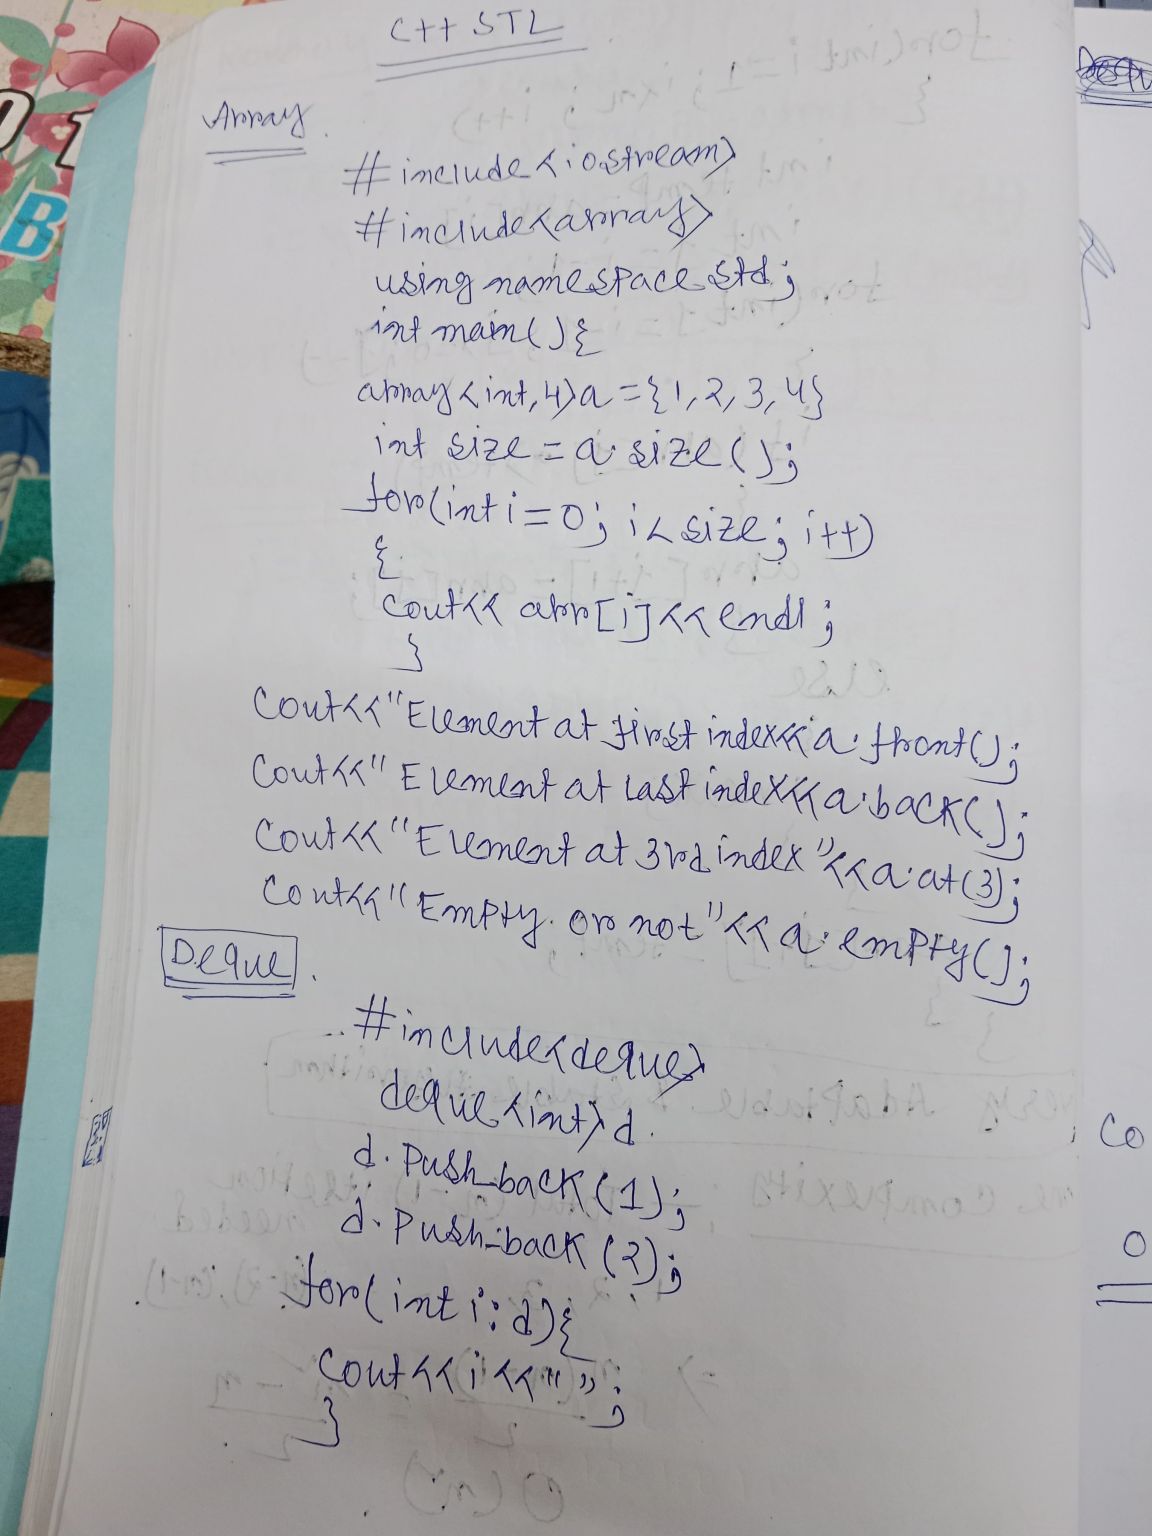 C++ STL
Array
#include<iostream>
#include<array>
using namespace std;
int main(){
array<int,4>a={1,2,3,4}
int size = a.size();
for(int i=0; i<size; i++)
{
cout<< arr[i]<<endl;
}
Cout<<"Element at first index<<a.front();
Cout<<"Element at last index<<a.back();
Cout<<"Element at 3rd index"<<a.at(3);
Cout<<"Empty or not"<<a.empty();
Deque
#include<deque>
deque<int>d.
d.Push_back(1);
d.Push_back(2);
for(int i:d){
Cout<<i<<" ";
}
Co
O